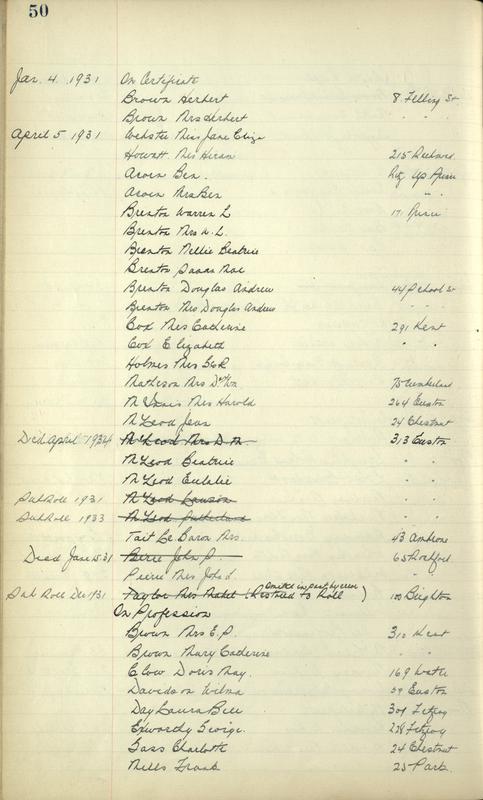 50
Jan. 4. 1931 On Certificate
Brown Herbert 8 Fitzroy St
Brown Mrs Herbert " "
April 5 1931 Webster Miss Jane Eliza
Howatt Mrs Hiram 215 Richmond
Arvin Ben.
Arvin Mrs Ben " "
Brenton Warren L 171 Prince
Brenton Mrs W. L.
Brenton Nellie Beatrice
Brenton Mae
Brenton Douglas Andrew 44 School St
Brenton Mrs Douglas Andrew " "
Cox Mrs Catherine 291 Kent
Cox Elizabeth " "
Holmes Mrs Geo R
Matheson Mrs 75 Cumberland
McInnis Mrs Harold 264 Euston
McLeod Jean 24 Chestnut
Died April 1934 McLeod Mrs D. M. 313 Euston
McLeod Beatrice " "
McLeod Eulalie " "
Sub Roll 1931 McLeod Lawson " "
Sub Roll 1933 McLeod Sutherland " "
Tait Le Baron Mrs. 43 Ambrose
Died Jan 15.31 Pierce John P. 65 Rochford
Mrs John " "
Sub Roll Dec 1931 Taylor Mrs Mabel (Restored to Roll omitted in past by error) 100 Brighton
On Profession
Brown Mrs E. P. 310 Kent
Brown Mary Catherine " "
Clow Doris May. 169 Water
Davidson Wilma 59 Euston
Day Laura Bell 301 Fitzroy
Exworthy George. 278 Fitzroy
Gass Charlotte 24 Chestnut
Mills Frank 25 Park.